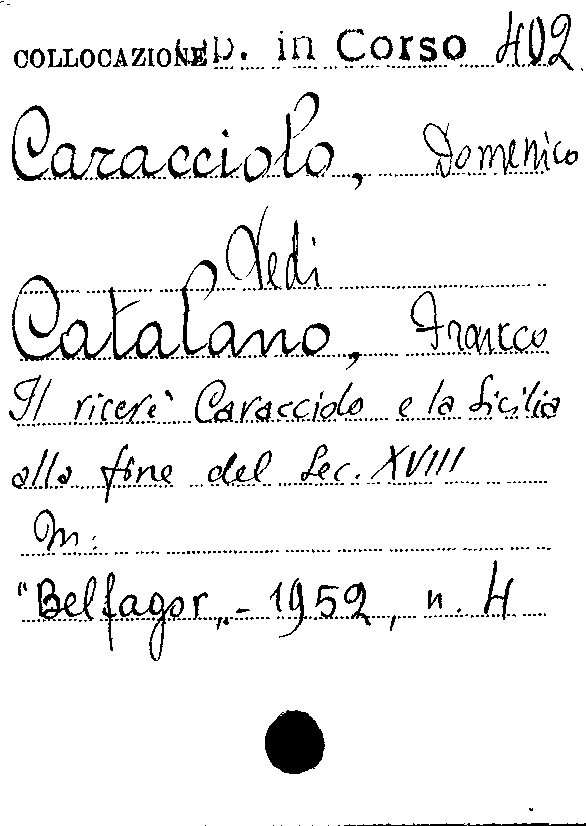 COLLOCAZIONE p. in Corso 402
Caracciolo, Domenico
Vedi
Catalano, Franco
Il viceré Caracciolo e la Sicilia
alla fine del Sec. XVIII
In:
"Belfagor„ - 1952, n. 4